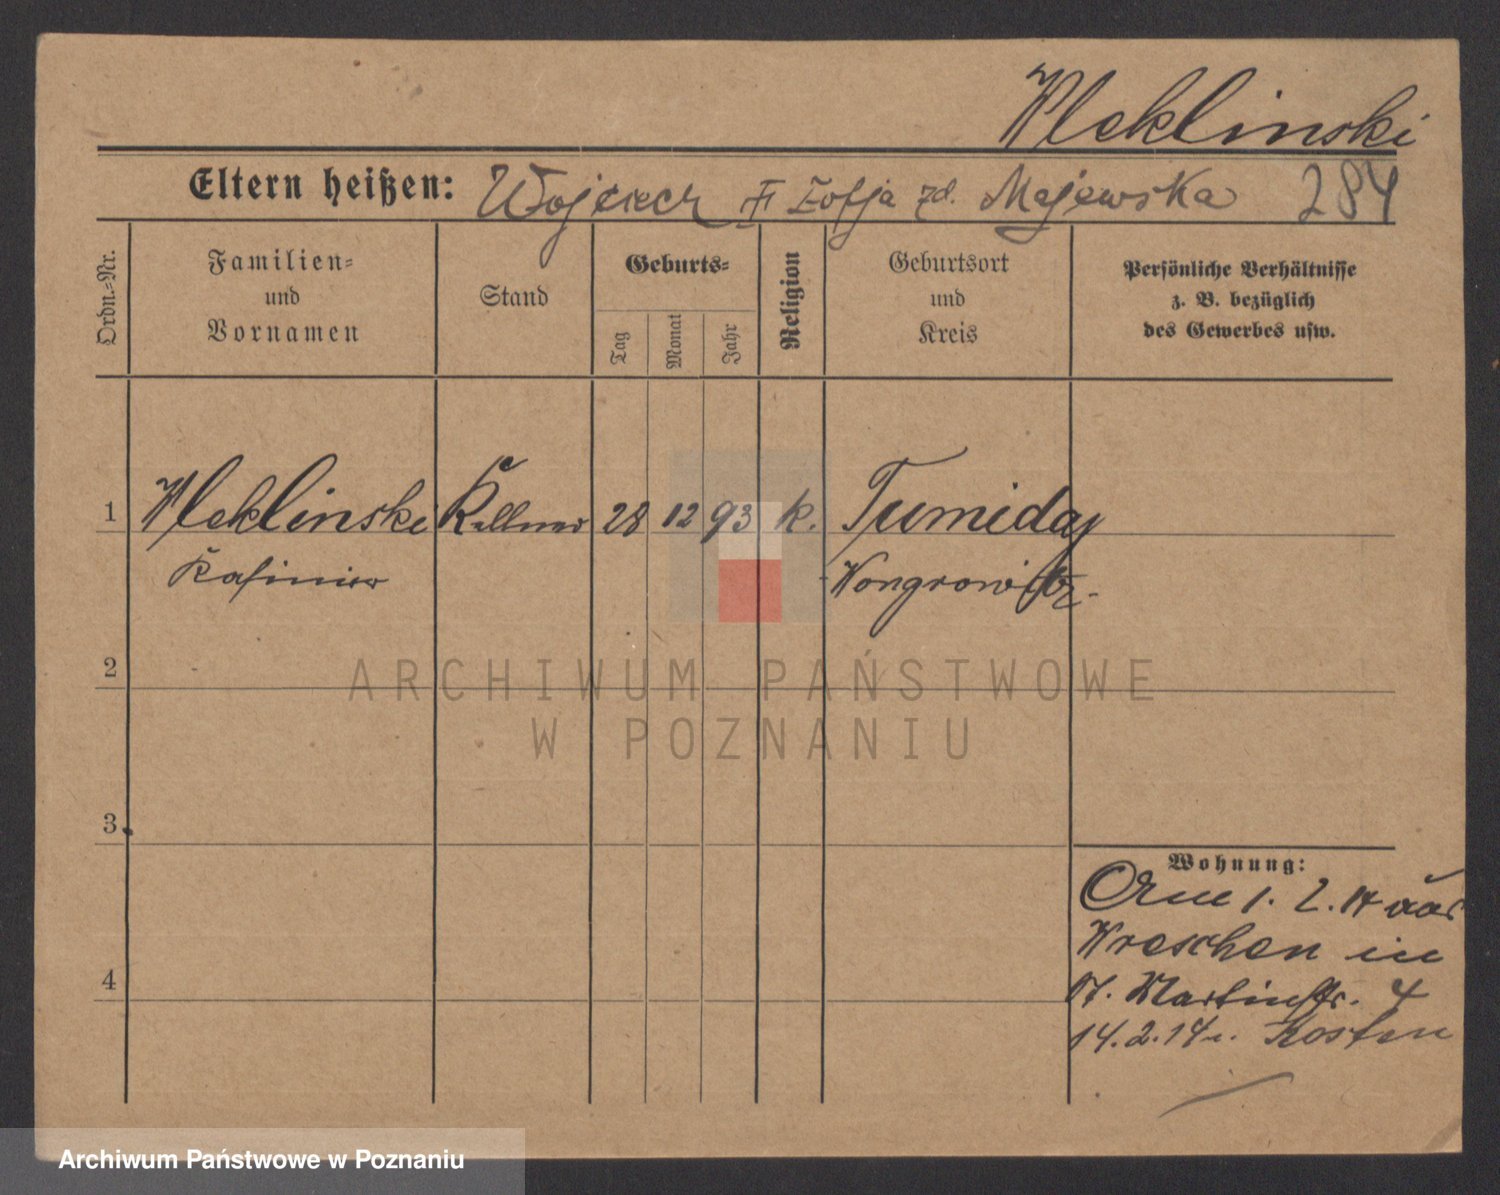 Wleklinski
Eltern heißen: Wojciech Zofja zd. Majewska 284
Ordn.-Nr.
Familien-
und
Vornamen
Stand
Geburts-
Tag
Monat
Jahr
Religion
Geburtsort
und
Kreis
Persönliche Verhältnisse
z. B. bezüglich
des Gewerbes usw.
1 Wleklinski Kellner 28 12 93 k. Tumidaj
Kasimir Wongrowitz
2
ARCHIWUM PAŃSTWOWE
W POZNANIU
3
Wohnung:
Am 1. 2. 14 aus
Wreschen in
St. Martinstr. 4
14. 2. 14 n. Kosten
4
Archiwum Państwowe w Poznaniu